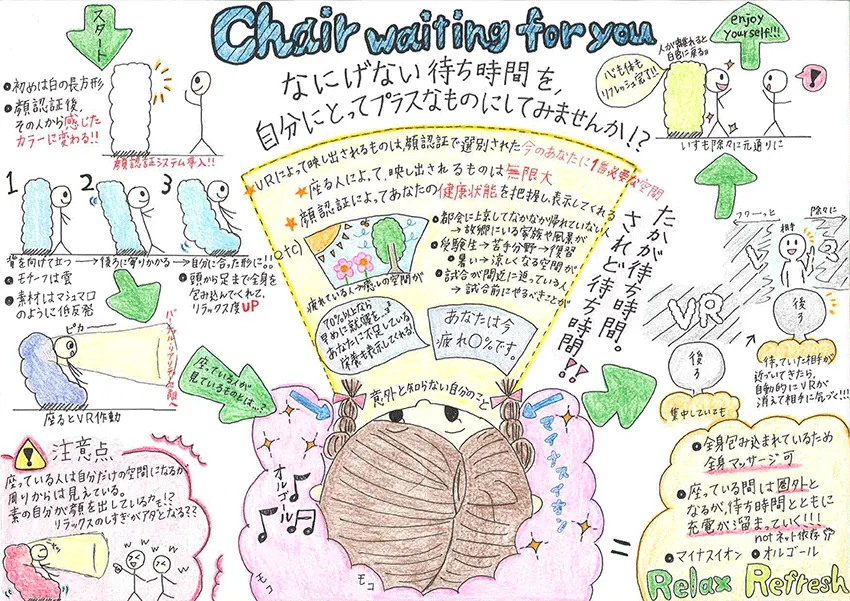 Chair waiting for you
なにげない待ち時間を、
自分にとってプラスなものにしてみませんか!?
スタート
初めは白の長方形
顔認証後、
その人から感じた
カラーに変わる!!
顔認証システム導入!!
1
2
3
背を向けて立つ→後ろに寄りかかる→自分に合った形に!!
モチーフは雲
素材はマシュマロ
のように低反発
頭から足まで全身を
包み込んでくれて、
リラックス度UP
ピカー
バーチャルリアリティ空間へ
座るとVR作動
座っている人が
見ているものとは…?
VRによって映し出されるものは、顔認証で選別された今のあなたに1番必要な空間
座る人によって、映し出されるものは無限大
顔認証によってあなたの健康状態を把握し、表示してくれる
都会に上京してなかなか帰れていない人
→故郷にいる家族や風景が
受験生→苦手分野の復習
暑い→涼しくなる空間が
試合が間近に迫っている人
→試合前にやるべきことが
疲れている人→癒しの空間が
70%以上なら
早めに就寝を…
あなたに不足している
栄養も表示してくれる!
あなたは今
疲れ〇%です。
意外と知らない自分のこと
たかが待ち時間。
されど待ち時間!!
enjoy
yourself!!!
人が離れると
自動に戻る
心も体も
リフレッシュ完了!!
!
いすも徐々に元通りに
フワーーっと
徐々に
相手
VR
後3
後3
集中していても
待っていた相手が
近づいてきたら、
自動的にVRが
消えて相手に気づく!!!
注意点
座っている人は自分だけの空間になるが、
周りからは見えている。
素の自分が顔を出しているカモ!?
リラックスのしすぎがアダとなる??
オルゴール
マイナスイオン
モコ
モコ
=
全身包み込まれているため
全身マッサージ可
座っている間は圏外と
なるが、待ち時間とともに
充電が溜まっていく!!!
notネット依存
マイナスイオン
オルゴール
Relax Refresh